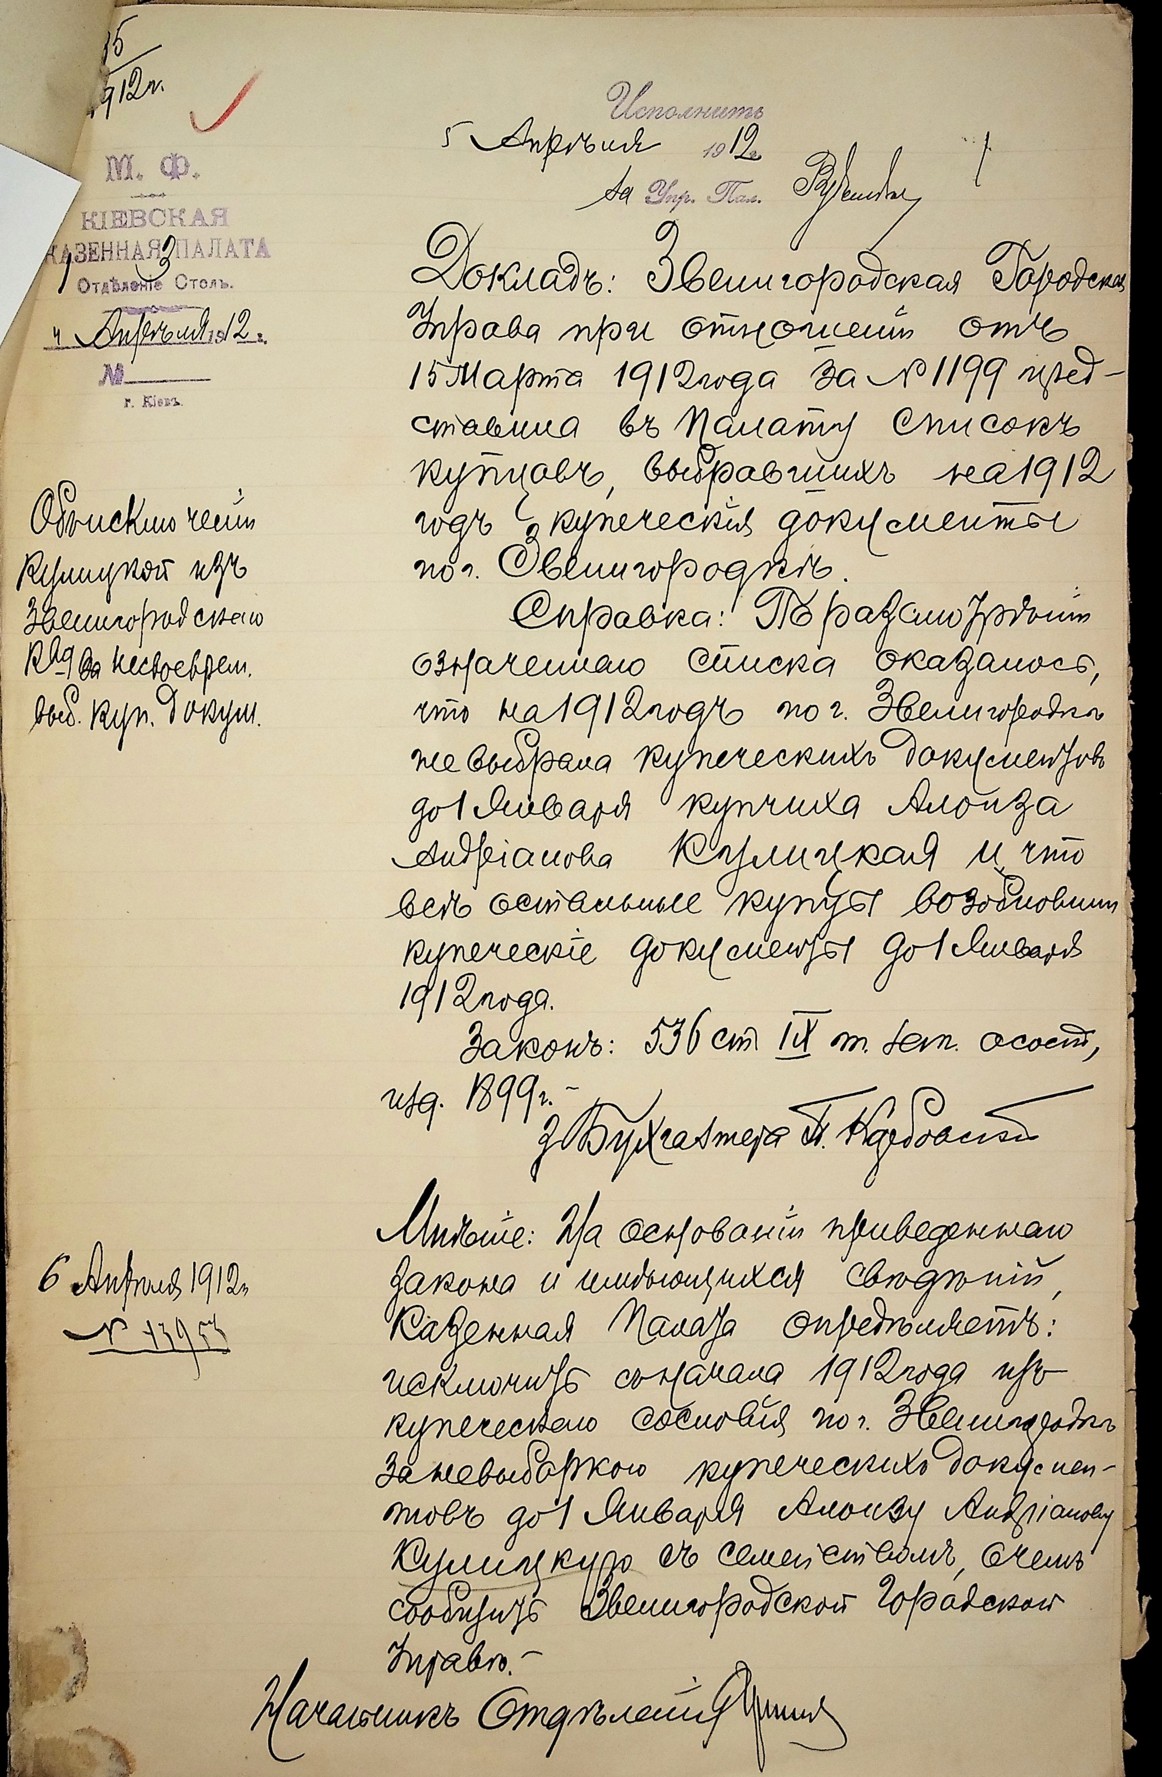 35
1912 г.
Исполнить
5 Апрѣля 1912 г.
за Упр. Пал.
М. Ф.
КІЕВСКАЯ
КАЗЕННАЯ ПАЛАТА
1 Отдѣленіе 3 Столъ.
4 Апрѣля 1912 г.
№
г. Кіевъ.
Объ исключеніи
Кулицкой изъ
Звенигородскаго
куп. за несвоеврем.
выб. куп. докум.
Докладъ: Звенигородская Городская
Управа при отношеніи отъ
15 Марта 1912 года за № 1199 пред-
ставила въ Палату списокъ
купцовъ, выбравшихъ на 1912
годъ купеческія документы
по г. Звенигородкѣ.
Справка: По разсмотрѣніи
означеннаго списка оказалось,
что на 1912 годъ по г. Звенигородкѣ
не выбрала купеческихъ документовъ
до 1 Января купчиха Алоиза
Андріанова Кулицкая и что
всѣ остальные купцы возобновили
купеческіе документы до 1 Января
1912 года.
Законъ: 536 ст. IX т. зак. о сост.,
изд. 1899 г.-
З Бухгалтера П.
Мнѣніе: На основаніи приведеннаго
закона и имѣющихся свѣдѣній,
Казенная Палата опредѣляетъ:
исключить съ начала 1912 года изъ
купеческаго сословія по г. Звенигородкѣ
за невыборкою купеческихъ докумен-
товъ до 1 Января Алоизу Андріанову
Кулицкую съ семействомъ, о чемъ
сообщить Звенигородской Городской
Управѣ.-
6 Апрѣля 1912 г.
№ 13953
Начальникъ Отдѣленія